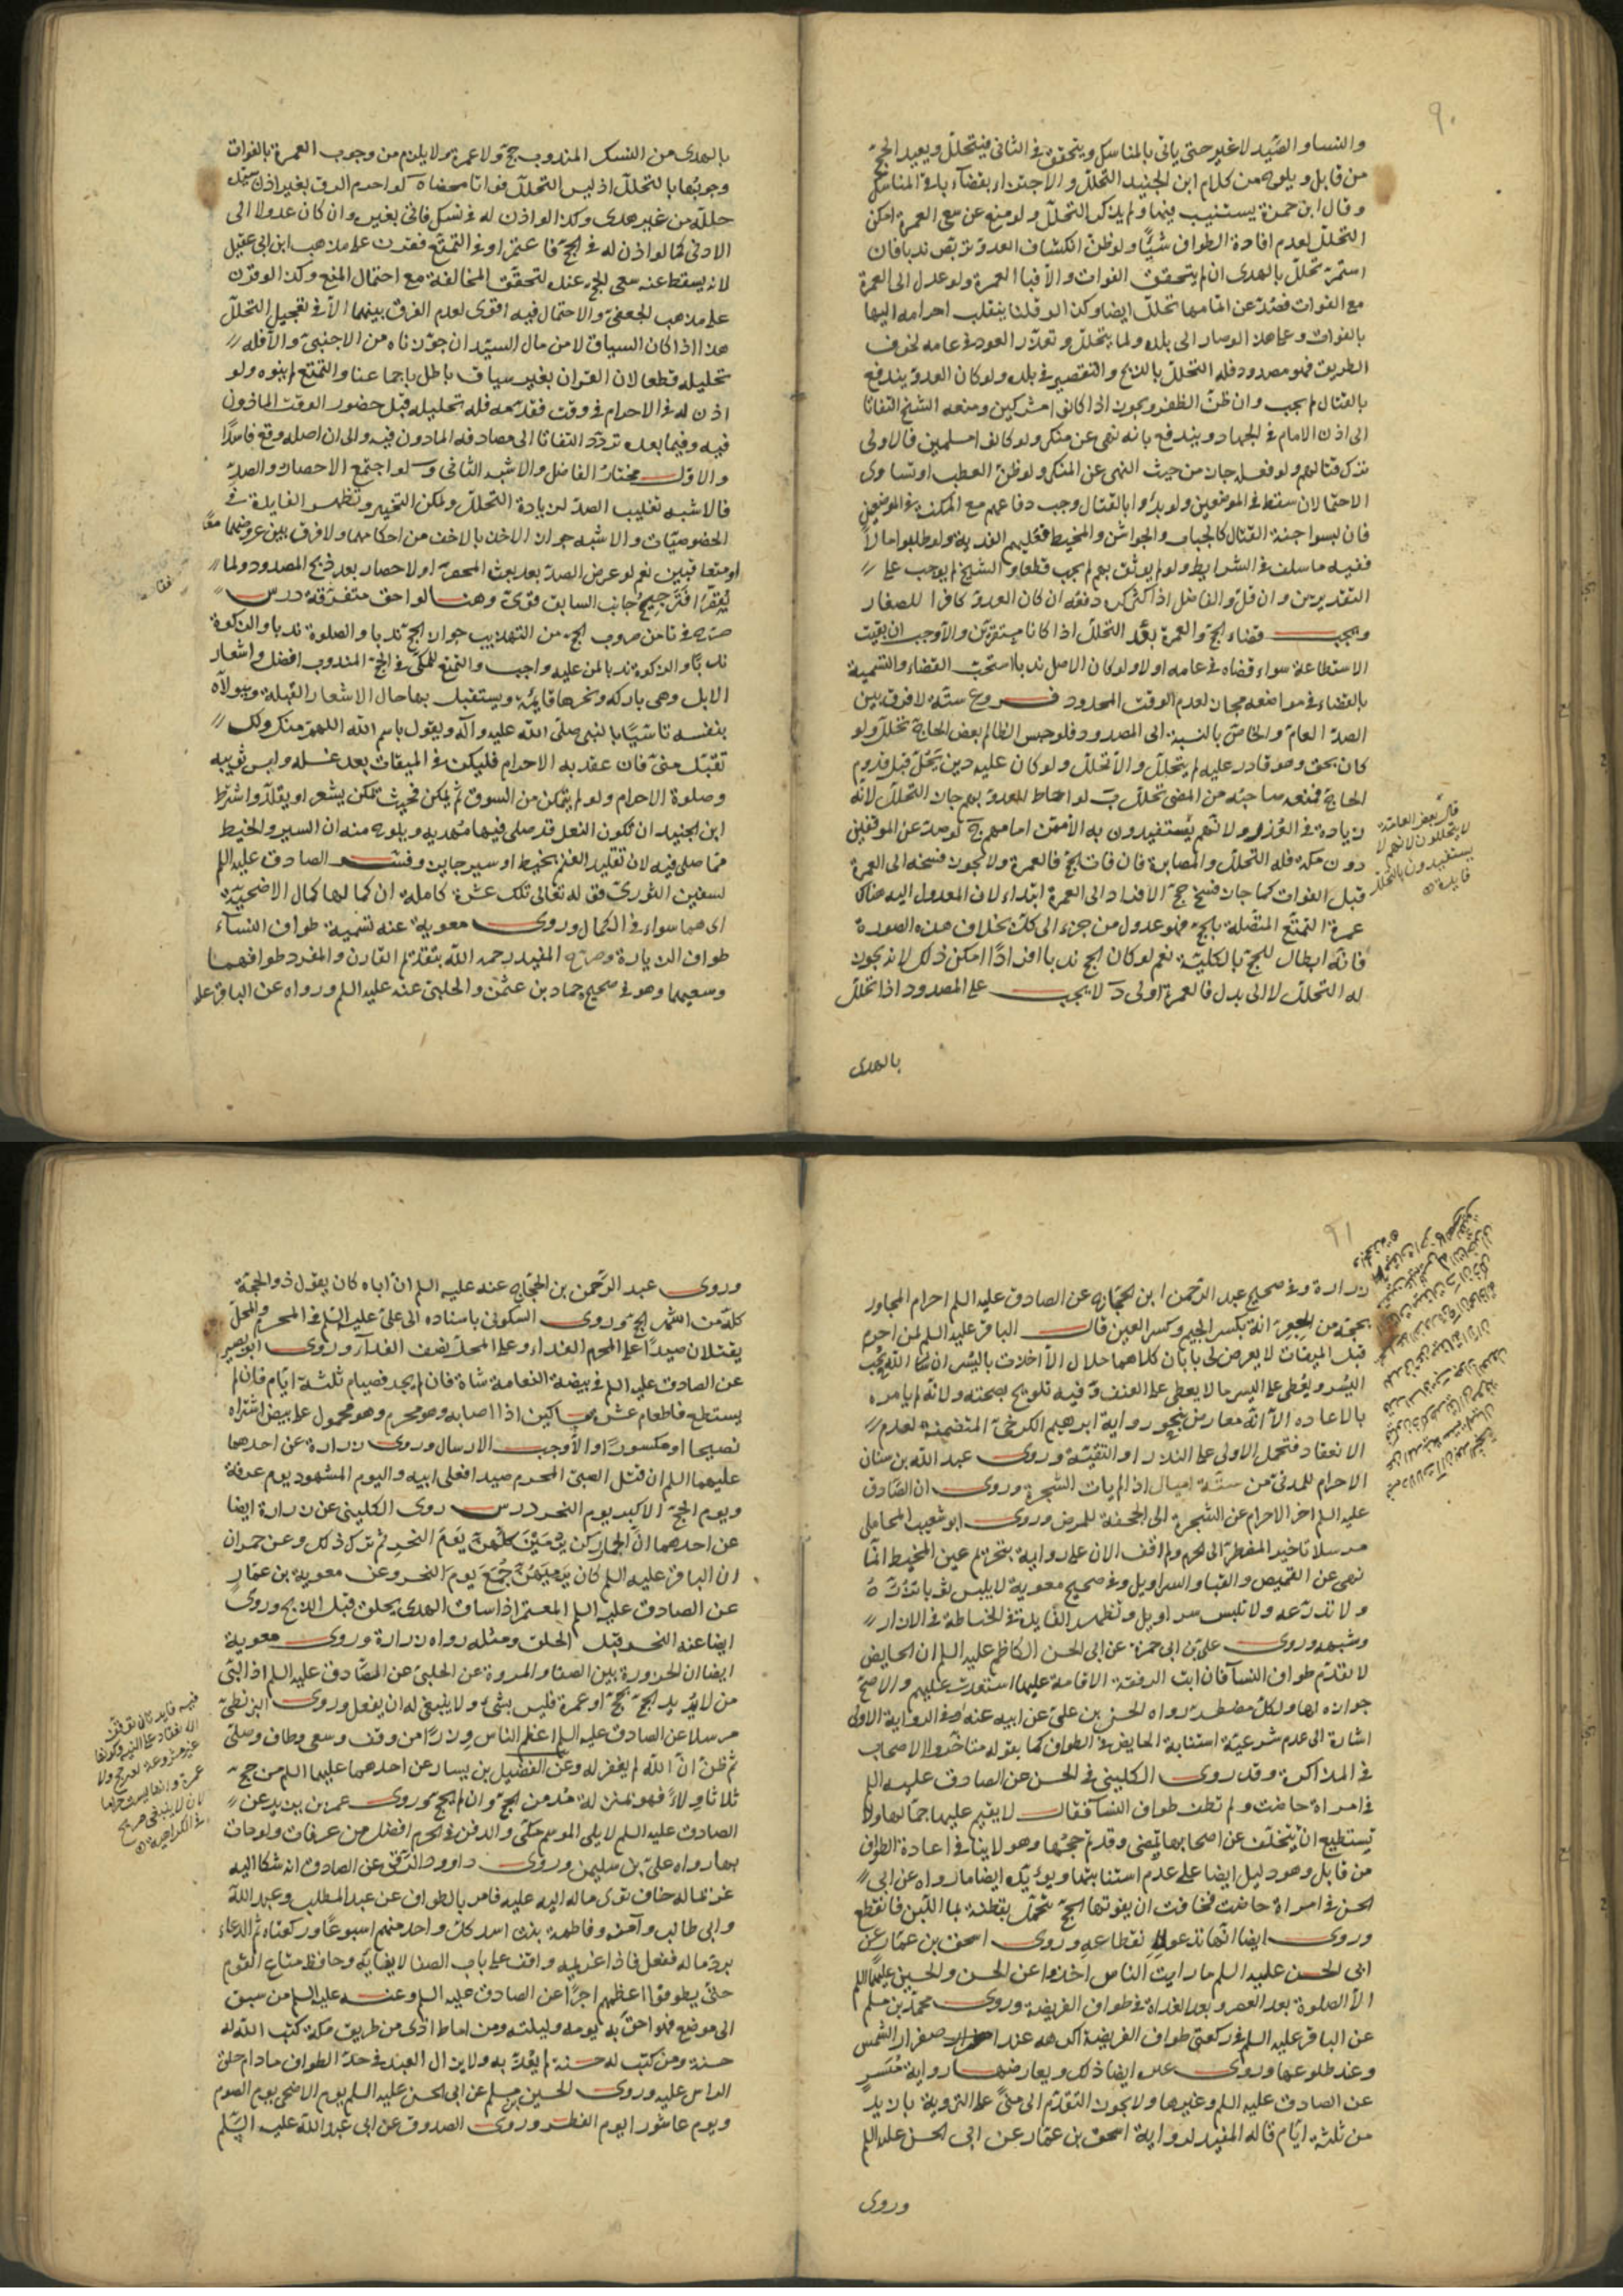 ٩٠
والنساء والصيد لا غير حتى ياتى بالمناسك ويتحقق فى الثانى فيتحلل ويعيد الحج
من قابل ويلوح من كلام ابن الجنيد التحلل والاجتزاء بقضاء باقى المناسك
وقال ابن حمزة يستنيب فيها ولم يذكر التحلل ولو منع عن سعى العمرة امكن
التحلل لعدم افادة الطواف شيئا ولو ظن انكشاف العدو تربص ندبا فان
استمر تحلل بالهدى ان لم يتحقق الفوات والا فبالعمرة ولو عدل الى العمرة
مع الفوات فصد عن اتمامها تحلل ايضا وكذا لو قلنا ينقلب احرامه اليها
بالفوات وعلى هذا لو صار الى بلده ولما يتحلل وتعذر العود فى عامه لخوف
الطريق فهو مصدود فله التحلل بالذبح والتقصير فى بلده ولو كان العدو يندفع
بالقتال لم يجب وان ظن الظفر ويجوز اذا كانوا مشركين ومنعه الشيخ التفاتا
الى اذن الامام فى الجهاد ويندفع بانه نهى عن منكر ولو كانوا مسلمين فالاولى
ترك قتالهم ولو فعل جاز من حيث النهى عن المنكر ولو ظن العطب او تساوى
الاحتمالان سقط فى الموضعين ولو بدؤا بالقتال وجب دفاعهم مع المكنة فى الموضعين
فان لبسوا جنة القتال كالجباب والجواشن والمخيط فعليهم الفدية ولو طلبوا مالا
ففيه ما سلف فى الشرايط ولو لم يوثق بهم لم يجب قطعا والشيخ لم يوجب على
التقديرين وان قل والفاضل اذا كثر كره دفعه ان كان العدو كافرا للصغار
ويجب قضاء الحج والعمرة بعد التحلل اذا كانا مستقرين والاوجب ان بقيت
الاستطاعة سواء قضاه فى عامه او لا ولو كان الاصل ندبا استحب القضاء والتسمية
بالقضاء فى مواضعه مجاز لعدم الوقت المحدود فروع ستة لا فرق بين
الصد العام والخاص بالنسبة الى المصدود فلو حبس الظالم بعض الحاج تحلل ولو
كان بحق وهو قادر عليه لم يتحلل والا تحلل ولو كان عليه دين يحل قبل قدوم
الحاج فمنعه صاحبه من المضى تحلل ب لو احاط العدو بهم جاز التحلل لانه
زيادة فى العذر ولانهم يستفيدون به الامن امامهم ج لو صد عن الموقفين
دون مكة فله التحلل والمصابرة فان فات الحج فالعمرة ولا يجوز فسخه الى العمرة
قبل الفوات كما جاز فسخ حج الافراد الى العمرة ابتداء لان المعدول اليه هناك
عمرة التمتع المتصلة بالحج فهو عدول من جزء الى كل بخلاف هذه الصورة
فانه ابطال للحج بالكلية نعم لو كان الحج ندبا افرادا امكن ذلك لانه يجوز
له التحلل لا الى بدل فالعمرة اولى د لا يجب على المصدود اذا تحلل
بالهدى
قال بعض العامة
لا يتحللون لانهم لا
يستفيدون بالتحلل
فايدة
بالهدى من النسك المندوب حج ولا عمرة ولا يلزم من وجوب العمرة بالفوات
وجوبها بالتحلل اذ ليس التحلل فواتا محضا ه لو احرم الرق بغير اذن سيده
حلله من غير هدى وكذا لو اذن له فى نسك فاتى بغيره وان كان عدولا الى
الادنى كما لو اذن له فى الحج فاعتمر او فى التمتع فقرن على مذهب ابن ابى عقيل
لانه يسقط عنه سعى الحج عنده لتحقق المخالفة مع احتمال المنع وكذا لو قرن
على مذهب الجعفى والاحتمال فيه اقوى لعدم الفرق بينهما الا فى تعجيل التحلل
هذا اذا كان السياق لا من مال السيد ان جوزناه من الاجنبى والا فله
تحليله قطعا لان القران بغير سياق باطل باجماعنا والتمتع لم ينوه ولو
اذن له فى الاحرام فى وقت فقدمه فله تحليله قبل حضور الوقت الماذون
فيه وفيما بعده تردد التفاتا الى مصادفه الماذون فيه والى ان اصله وقع فاسدا
والاول مختار الفاضل والاشبه الثانى و لو اجتمع الاحصار والصد
فالاشبه تغليب الصد لزيادة التحلل ويمكن التخير وتظهر الفايدة فى
الخصوصيات والاشبه جواز الاخذ بالاخف من احكامهما ولا فرق بين عروضهما معا
او متعاقبين نعم لو عرض الصد بعد بعث المحصر او الاحصار بعد ذبح المصدود ولما
يقصر فترجيح جانب السابق قوى وهنا لواحق متفرقة درس
صرح فى ثامن ضروب الحج من التهذيب جواز الحج ندبا والصلوة ندبا والزكوة
ندبا والزكوة ندبا لمن عليه واجب والتمتع للمكى فى الحج المندوب افضل واشعار
الابل وهى باركه ونحرها قايمة ويستقبل بها حال الاشعار القبلة ويتولاه
بنفسه تاسيا بالنبى صلى الله عليه وآله ويقول باسم الله اللهم منك ولك
تقبل منى فان عقد به الاحرام فليكن فى الميقات بعد غسله ولبس ثوبيه
وصلوة الاحرام ولو لم يتمكن من السوق ثم يمكن فحيث تمكن يشعر او يقلد واشترط
ابن الجنيد ان تكون النعل قد صلى فيها مهديه ويلوح منه ان السير والخيط
مما صلى فيه لان تقليد الغنم بخيط او سير جايز وفسر الصادق عليه السلم
لسفين الثورى قوله تعالى تلك عشرة كاملة ان كمالها كمال الاضحية
اى هما سواء فى الكمال وروى معوية عنه تسمية طواف النساء
طواف الزيارة وصرح المفيد رحمه الله بتقديم القارن والمفرد طوافهما
وسعيهما وهو فى صحيح حماد بن عثمن والحلبى عنه عليه السلم ورواه عن الباقر عليه
٩١
زرارة وفى صحيح عبد الرحمن ابن الحجاج عن الصادق عليه السلم احرام المجاور
بمكة من الجعرانة بكسر الجيم وكسر العين قال الباقر عليه السلم لمن احرم
قبل الميقات لا يعرض لى بابان كلاهما حلال الا اخذت باليسر ان الله يحب
اليسر ويعطى على اليسر ما لا يعطى على العنف وفيه تلويح بصحته ولانه لم يامره
بالاعاده الا انه معارض بنحو رواية ابرهيم الكرخى المتضمنة لعدم
الانعقاد فتحمل الاولى على النذر او التقية وروى عبد الله بن سنان
الاحرام للمدنى من ستة اميال اذا لم يات الشجرة وروى ان الصادق
عليه السلم اخر الاحرام عن الشجرة الى الجحفة للمرض وروى ابو شعيب المحاملى
مرسلا تاخير المضطر الى الحرم ولم اقف الان على رواية بتحريم عين المخيط انما
نهى عن القميص والقباء والسراويل وفى صحيح معوية لا يلبس ثوبا تزره
ولا تدرعه ولا تلبس سراويل وتظهر الفايدة فى الخياطة فى الازار
وشبهه وروى على بن ابى حمزة عن ابى الحسن الكاظم عليه السلم ان الحايض
لا تقدم طواف النسآ فان ابت الرفقة الاقامة عليها استعدت عليهم والاصح
جوازه لها ولكل مضطر رواه الحسن بن على عن ابيه عنه وفى الرواية الاولى
اشارة الى عدم شرعية استنابة الحايض فى الطواف كما يقوله متاخروا الاصحاب
فى المذاكرة وقد روى الكلينى فى الحسن عن الصادق عليه السلم
فى امراة حاضت ولم تطف طواف النسآ فقال لا يقيم عليها جمالها ولا
تستطيع ان تتخلف عن اصحابها تمضى وقد تم حجها وهو لا ينافى اعادة الطواف
من قابل وهو دليل ايضا على عدم استنابتها ويؤيده ايضا ما رواه عن ابى
الحسن فى امراة حاضت فخافت ان يفوتها الحج تتحمل بقطنة بماء اللبن فانقطع
وروى ايضا انها تدعو لانقطاعه وروى اسحق بن عمار عن
ابى الحسن عليه السلم ما رايت الناس اخذوا عن الحسن والحسين عليهما السلم
الا الصلوة بعد العصر وبعد الغداة فى طواف الفريضة وروى محمد بن مسلم
عن الباقر عليه السلم فى ركعتى طواف الفريضة اكرهه عند اصفرار الشمس
وعند طلوعها وروى ايضا ذلك ويعارضها رواية ميسر
عن الصادق عليه السلم وغيرها ولا يجوز التقدم الى منى على التروية بازيد
من ثلثة ايام قاله المفيد لرواية اسحق بن عمار عن ابى الحسن عليه السلم
وروى
وروى عبد الرحمن بن الحجاج عنه عليه السلم ان اباه كان يقول ذو الحجة
كله من اشهر الحج وروى السكونى باسناده الى على عليه السلم فى المحرم والمحل
يقتلان صيدا على المحرم الفداء وعلى المحل نصف الفدآ وروى ابو بصير
عن الصادق عليه السلم فى بيضة النعامة شاة فان لم يجد فصيام ثلثة ايام فان لم
يستطع فاطعام عشرة مساكين اذا اصابه وهو محرم وهو محمول على بيض اشتراه
نصيحا او مكسورا والاوجب الارسال وروى زرارة عن احدهما
عليهما السلم ان قتل الصبى المحرم صيدا فعلى ابيه واليوم المشهود يوم عرفة
ويوم الحج الاكبر يوم النحر درس روى الكلينى عن زرارة ايضا
عن احدهما ان الجمار كن يرمين كلهن يوم النحر ثم ترك ذلك وعن حمران
ان الباقر عليه السلم كان يرميهن جمع يوم النحر وعن معوية بن عمار
عن الصادق عليه السلم المعتمر اذا ساق الهدى يحلق قبل الذبح وروى
ايضا عنه النحر قبل الحلق ومثله رواه زرارة وروى معوية
ايضا ان الحزورة بين الصفا والمروة عن الحلبى عن الصادق عليه السلم اذا لبى
من لا يريد الحج بحج او عمرة فليس بشىء ولا ينبغى له ان يفعل وروى البزنطى
مرسلا عن الصادق عليه السلم اعظم الناس وزرا من وقف وسعى وطاف وصلى
ثم ظن ان الله لم يغفر له وعن الفضيل بن يسار عن احدهما عليهما السلم من حج
ثلاثا ولاء فهو بمنزلة مدمن الحج وان لم يحج وروى عمر بن يزيد عن
الصادق عليه السلم لا يلى الموسم مكى والدفن فى الحرم افضل من عرفات ولو مات
بها رواه على بن سليمن وروى داوود الرقى عن الصادق انه شكا اليه
غريما له خاف توى ماله اليه عليه فامر بالطواف عن عبد المطلب وعبد الله
وابى طالب وآمنه وفاطمة بنت اسد كل واحد منهم اسبوعا وركعتاه ثم الدعاء
برد ماله ففعل فاذا غريمه واقف على باب الصفا لايفايه وحافظ متاع القوم
حتى يطوفوا اعظمهم اجرا عن الصادق عليه السلم وعنه عليه السلم من سبق
الى موضع فهو احق به يومه وليلته ومن اماط اذى من طريق مكة كتب الله له
حسنة ومن كتب له حسنة لم يعذبه ولا يزال العبد فى حد الطواف ما دام حلق
الراس عليه وروى الحسين بن مسلم عن ابى الحسن عليه السلم يوم الاضحى يوم الصوم
ويوم عاشورا يوم الفطر وروى الصدوق عن ابى عبد الله عليه السلم